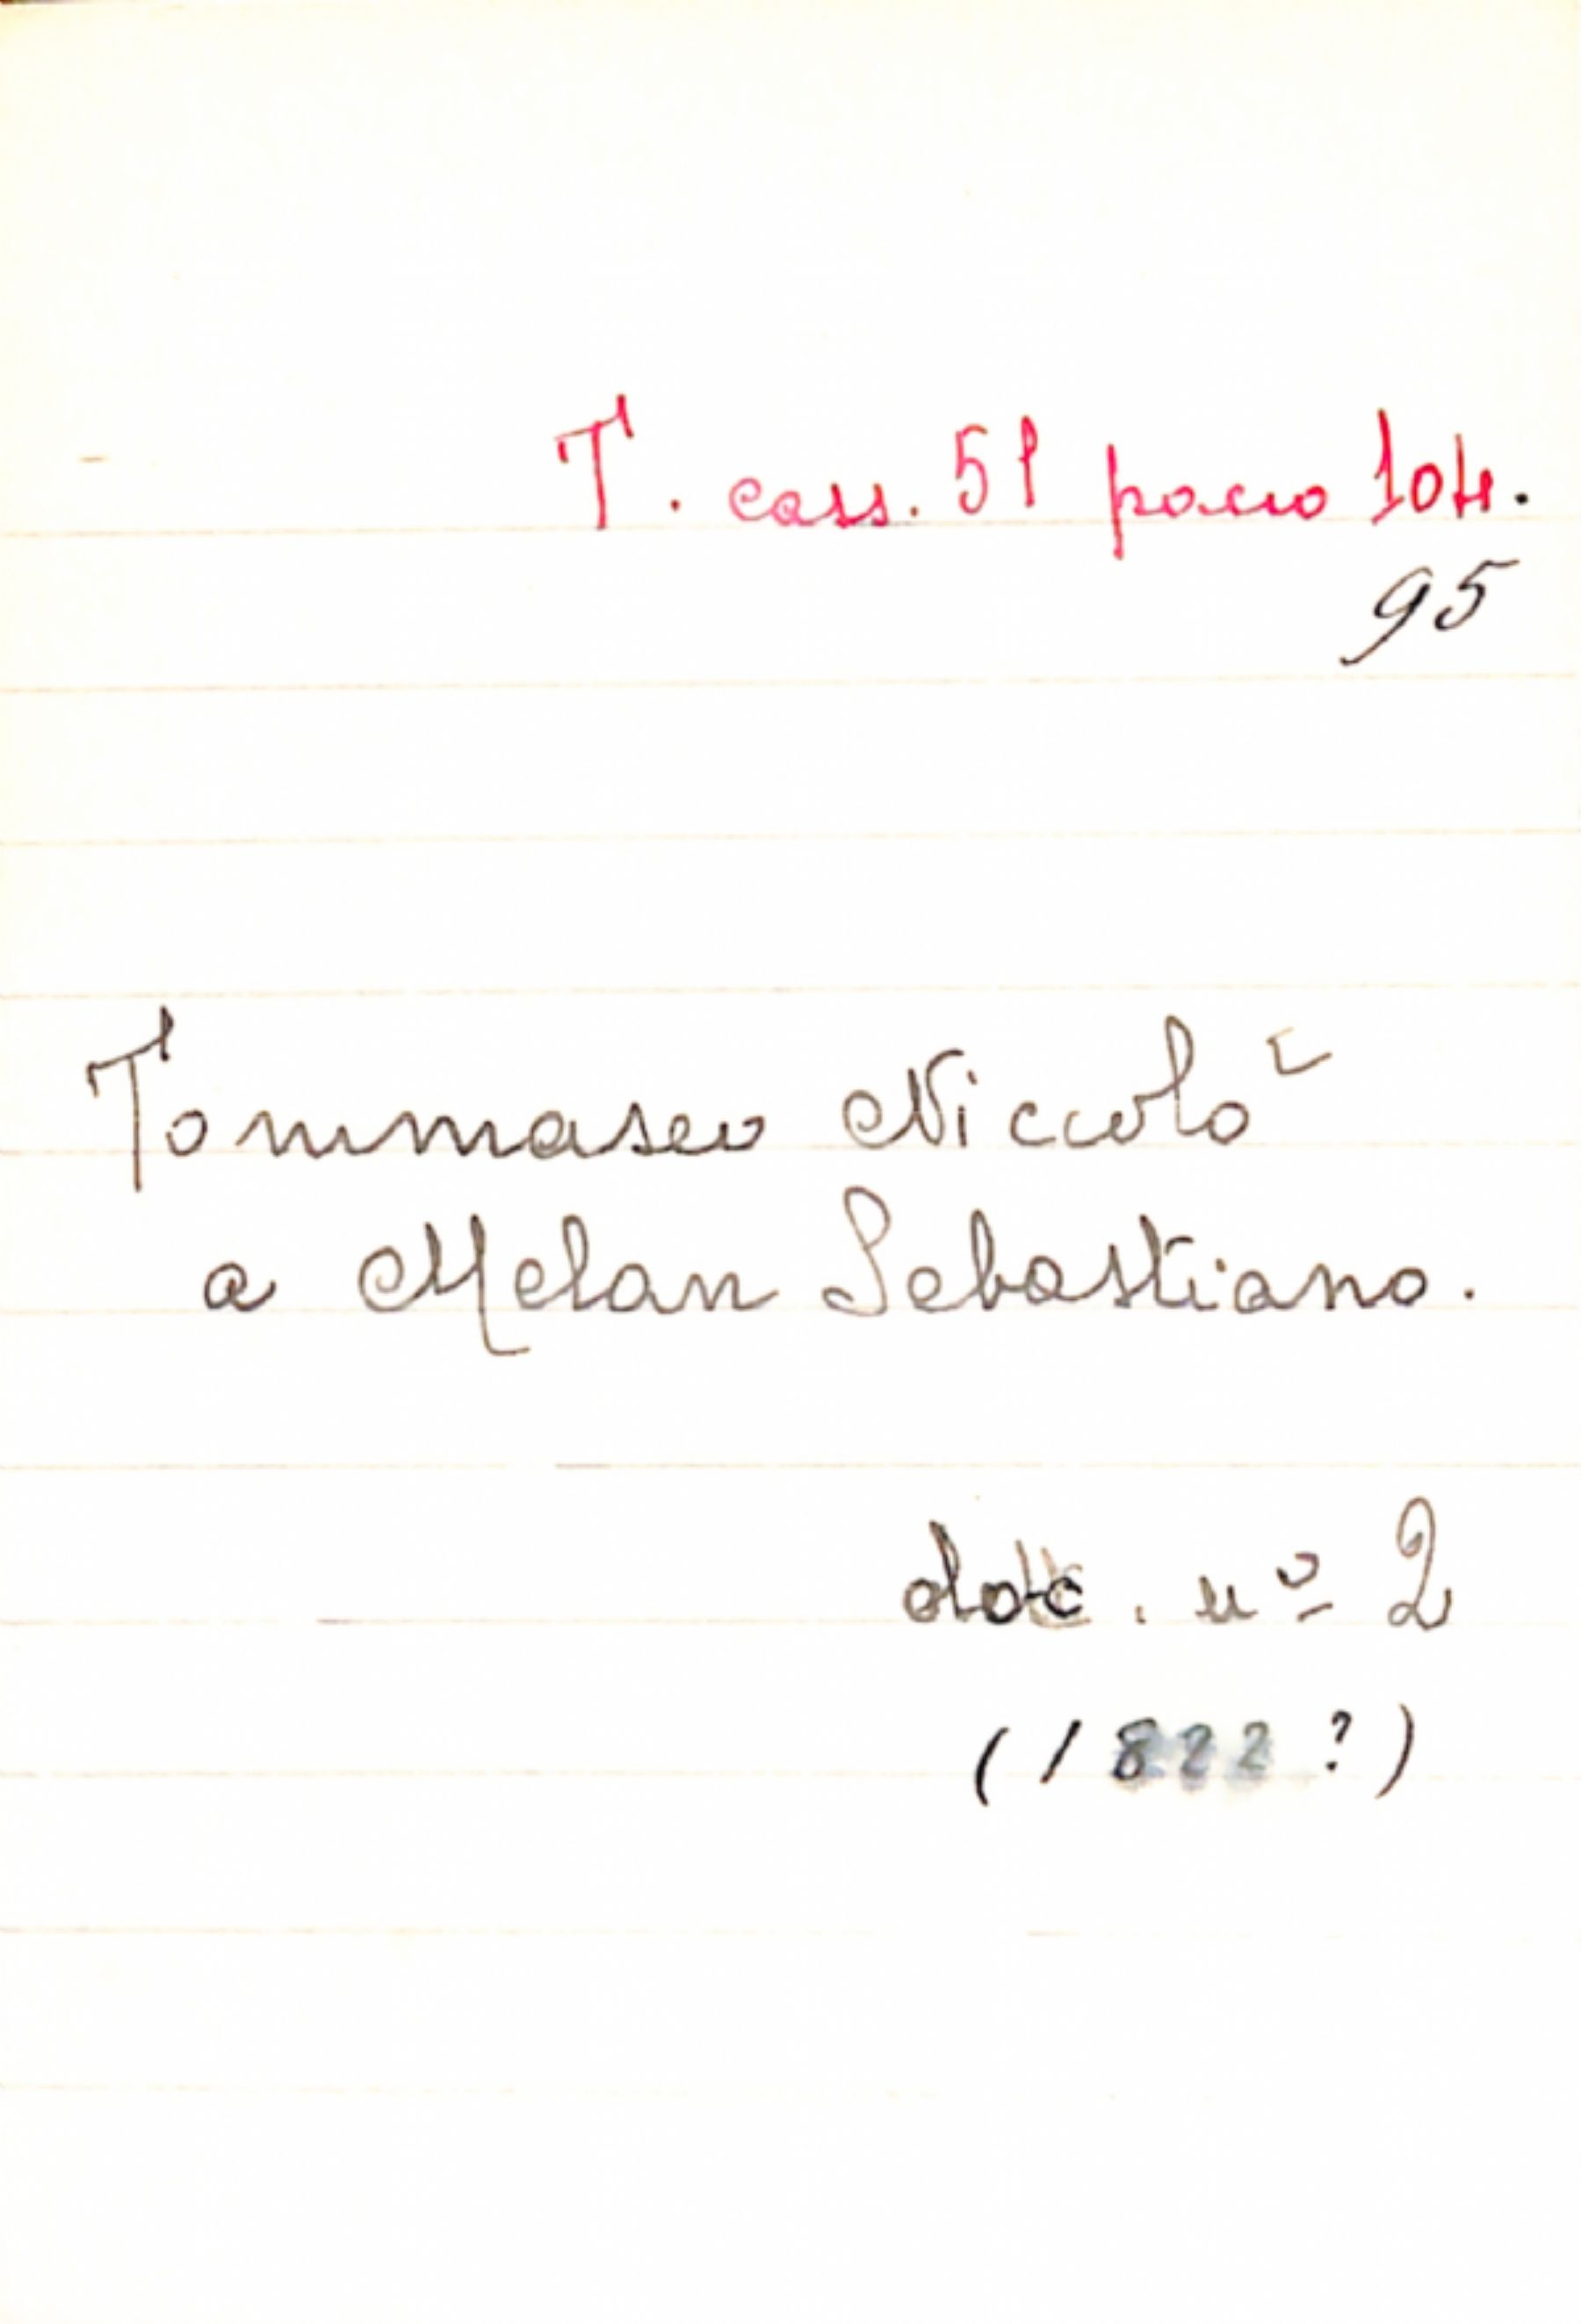 T. cass. 51 pacco 104.
95
Tommaseo Niccolò
a Melan Sebastiano.
doc. nº 2
(1822?)